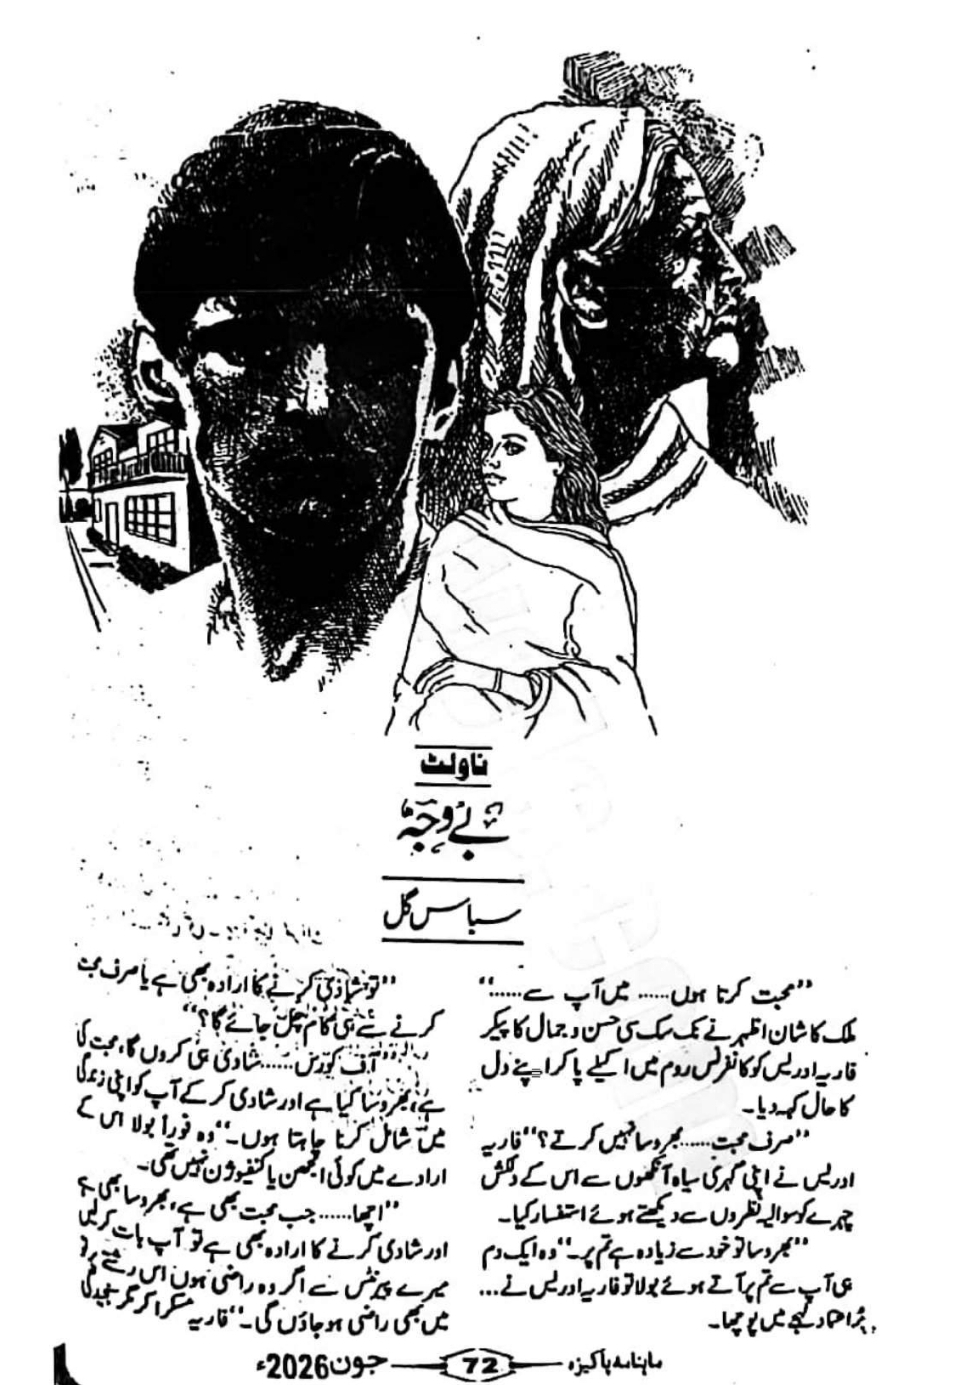 ناولٹ
بے وجہ
سباس گل
”محبت کرتا ہوں...... میں آپ سے......“
ملک کاشان اظہر نے تک سک سی حسن و جمال کا پیکر
فاریہ ادریس کو کانفرنس روم میں اکیلے پا کر اپنے دل
کا حال کہہ دیا۔
”صرف محبت...... بھروسا نہیں کرتے؟“ فاریہ
ادریس نے اپنی گہری سیاہ آنکھوں سے اس کے دلکش
چہرے کو سوالیہ نظروں سے دیکھتے ہوئے استفسار کیا۔
”بھروسا تو خود سے زیادہ ہے تم پر۔“ وہ ایک دم
ہی آپ سے تم پر آتے ہوئے بولا تو فاریہ ادریس نے...
پُراعتماد لہجے میں پوچھا۔
”تو شادی کرنے کا ارادہ بھی ہے یا صرف محبت
کرنے سے ہی کام چل جائے گا؟“
”آف کورس...... شادی ہی کروں گا، محبت کی
ہے، بھروسا کیا ہے اور شادی کر کے آپ کو اپنی زندگی
میں شامل کرنا چاہتا ہوں۔“ وہ فوراً بولا اس کے
ارادے میں کوئی الجھن یا کنفیوژن نہیں تھی۔
”اچھا...... جب محبت بھی ہے، بھروسا بھی ہے
اور شادی کرنے کا ارادہ بھی ہے تو آپ بات کر لیں
میرے پیرنٹس سے اگر وہ راضی ہوں اس رشتے پر تو
میں بھی راضی ہو جاؤں گی۔“ فاریہ مسکرا کر مگر سنجیدگی
ماہنامہ پاکیزہ 72 جون 2026ء